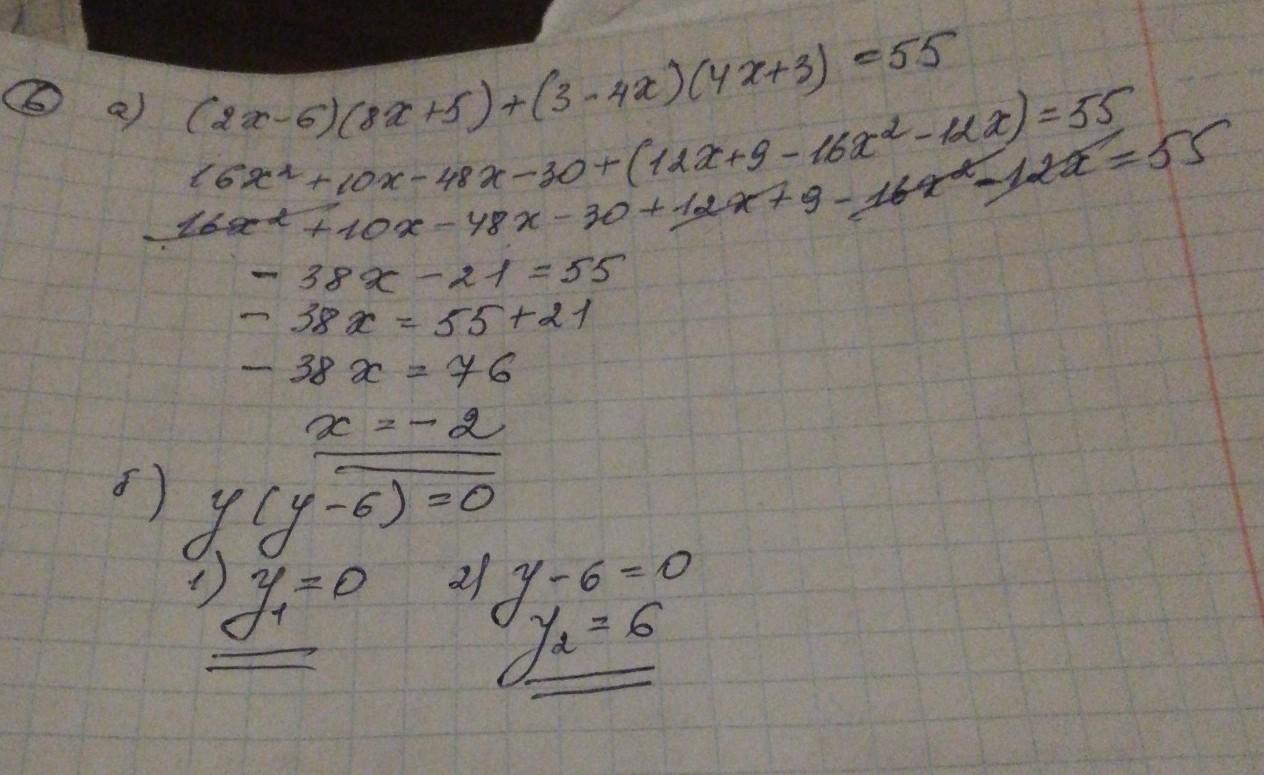 6 а) (2x-6)(8x+5)+(3-4x)(4x+3) =55
16x²+10x-48x-30+(12x+9-16x²-12x)=55
16x²+10x-48x-30+12x+9-16x²-12x=55
-38x-21=55
-38x=55+21
-38x=76
x=-2
б) y(y-6)=0
1) y₁=0 2) y-6=0
y₂=6